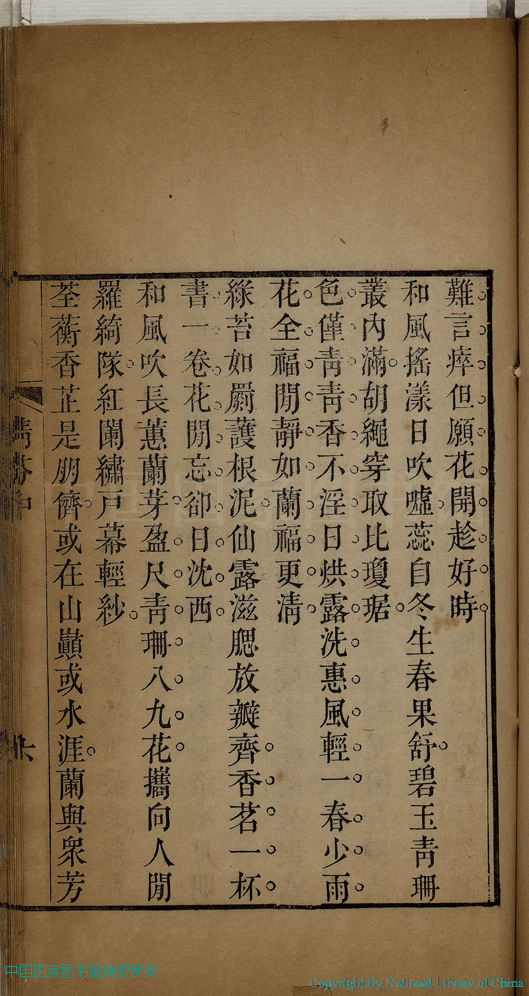 難言瘁但願花開趁好時
和風搖漾日吹噓蕊自冬生春果舒碧玉青珊
叢內滿胡繩穿取比瓊琚
色僅青青香不淫日烘露洗惠風輕一春少雨
花全福閒靜如蘭福更清
綠苔如罽護根泥仙露滋腮放瓣齊香茗一杯
書一卷花閒忘卻日沈西
和風吹長蕙蘭芽盈尺青珊八九花攜向人閒
羅綺隊紅闌繡戸幕輕紗
荃蘅香芷是朋儕或在山巔或水涯蘭與衆芳
Copyright By National Library of China